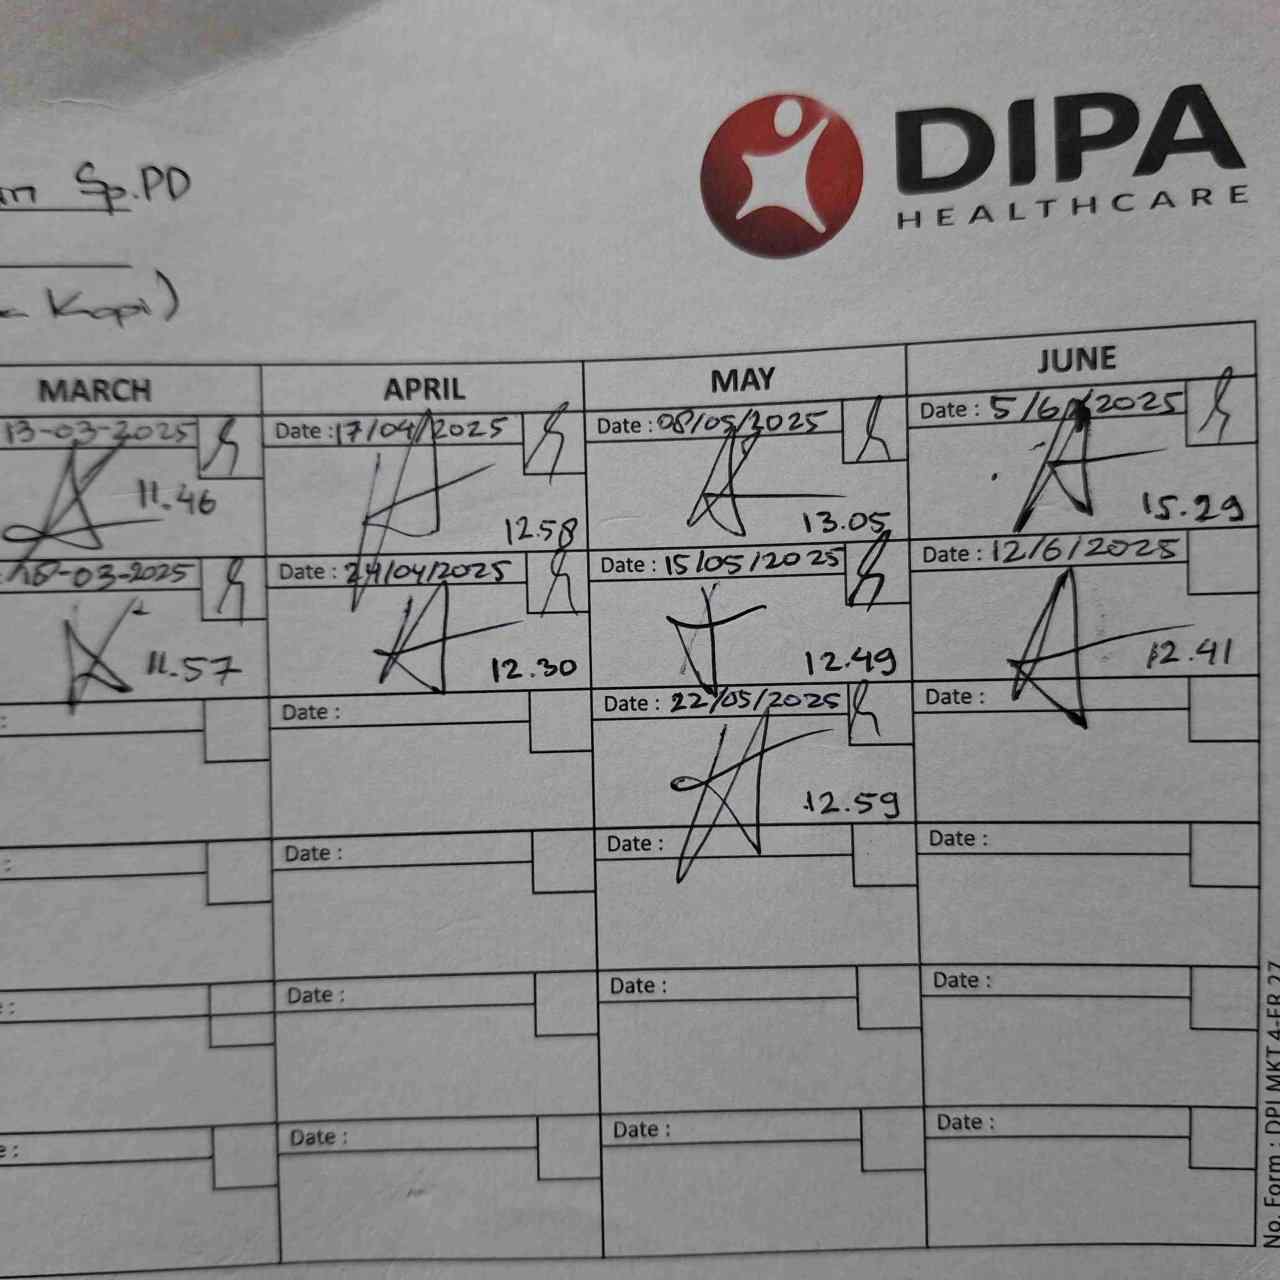 DIPA
HEALTHCARE
Sp.PD
Kopi)
MARCH APRIL MAY JUNE
13-03-2025 Date : 17/04/2025 Date : 08/05/2025 Date : 5/6/2025
11.46 12.58 13.05 15.29
-03-2025 Date : 24/04/2025 Date : 15/05/2025 Date : 12/6/2025
11.57 12.30 12.49 12.41
: Date : Date : 22/05/2025 Date :
12.59
: Date : Date : Date :
: Date : Date : Date :
e : Date : Date : Date :
No. Form : DPI.MKT.4-FR.27